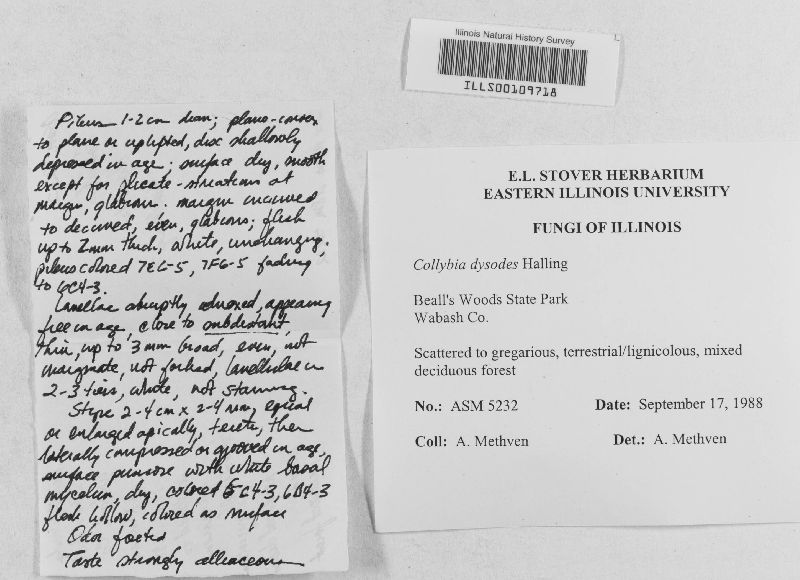 Illinois Natural History Survey
ILLS00109718
Pileus 1-2 cm diam; plano-convex
to plane or uplifted, disc shallowly
depressed in age; surface dry, smooth
except for plicate-striations at
margin, glabrous. margin incurved
to decurved, even, glabrous; flesh
up to 2mm thick, white, unchanging.
pileus colored 7E6-5, 7F6-5 fading
to 6C4-3.
Lamellae abruptly adnexed, appearing
free in age, close to subdistant,
thin, up to 3 mm broad, even, not
marginate, not forked, lamellulae in
2-3 tiers, white, not staining.
Stipe 2-4 cm x 2-4 mm, equal
or enlarged apically, terete, then
laterally compressed or grooved in age,
surface pruinose with white basal
mycelium, dry, colored 5C4-3, 6D4-3
flesh hollow, colored as surface
Odor foetid
Taste strongly alliaceous
E.L. STOVER HERBARIUM
EASTERN ILLINOIS UNIVERSITY
FUNGI OF ILLINOIS
Collybia dysodes Halling
Beall's Woods State Park
Wabash Co.
Scattered to gregarious, terrestrial/lignicolous, mixed
deciduous forest
No.: ASM 5232 Date: September 17, 1988
Coll: A. Methven Det.: A. Methven